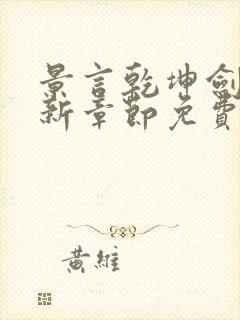 景言乾坤劍
新章節免費
黃維